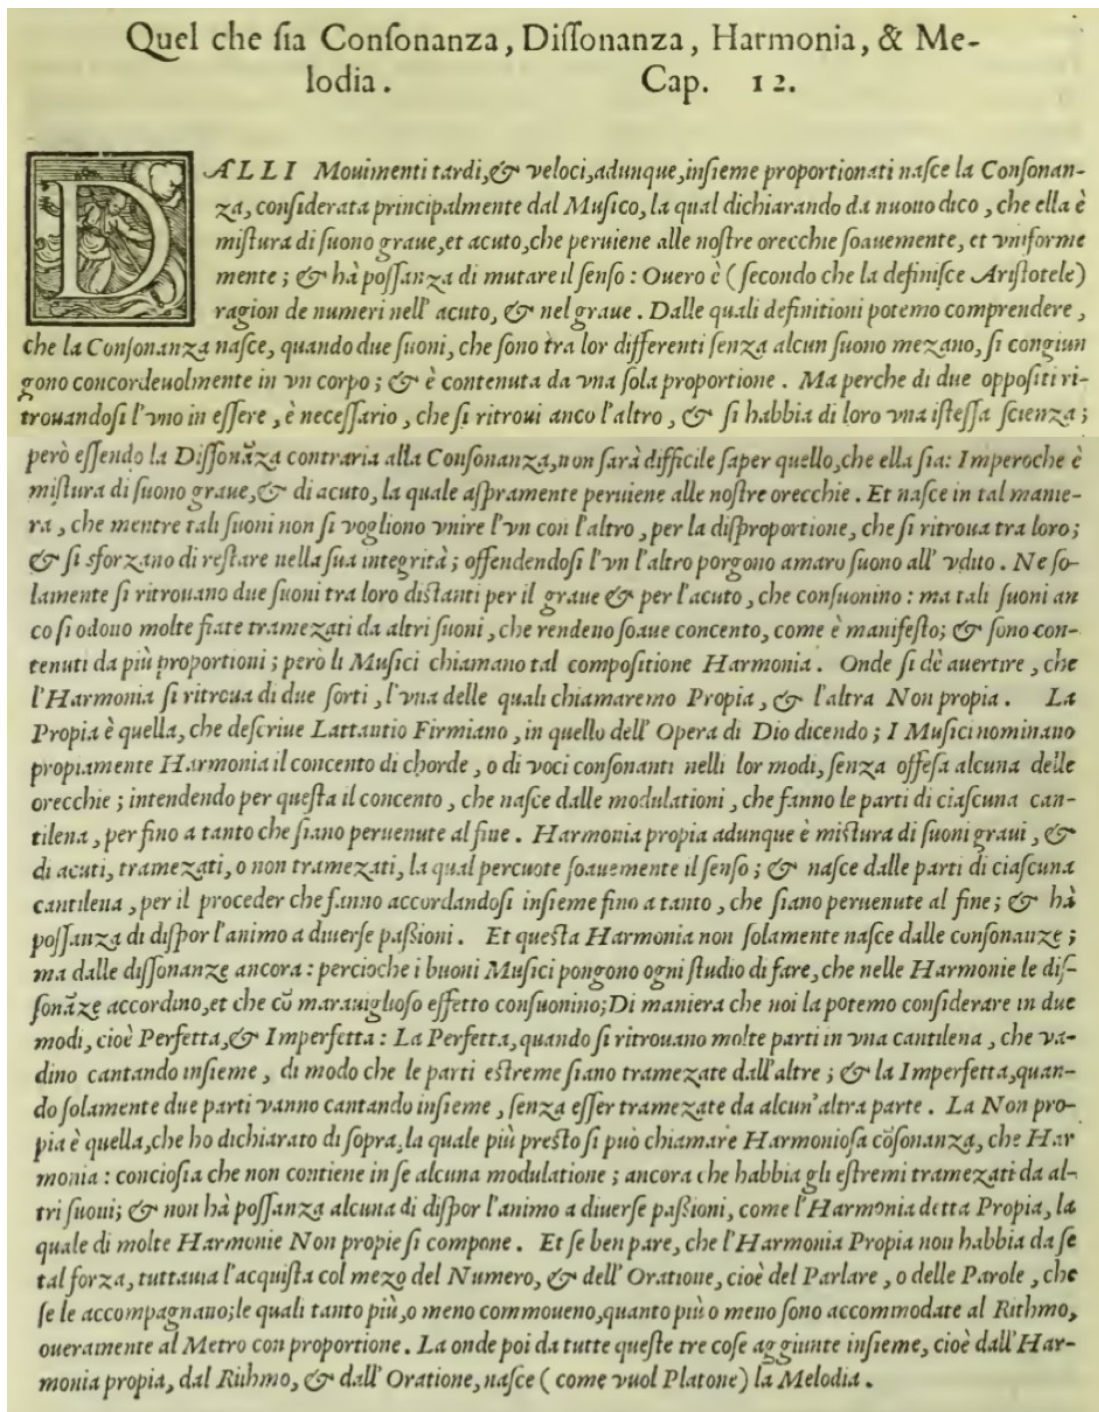 Quel che ſia Conſonanza, Diſſonanza, Harmonia, & Me-
lodia. Cap. 12.
DALLI Mouimenti tardi,& veloci,adunque,inſieme proportionati naſce la Conſonan-
za, conſiderata principalmente dal Muſico, la qual dichiarando da nuouo dico, che ella è
miſtura di ſuono graue,et acuto,che peruiene alle noſtre orecchie ſoauemente, et vniforme
mente; & hà poſſanza di mutare il ſenſo: Ouero è (ſecondo che la definiſce Ariſtotele)
ragion de numeri nell' acuto, & nel graue. Dalle quali definitioni potemo comprendere,
che la Conſonanza naſce, quando due ſuoni, che ſono tra lor differenti ſenza alcun ſuono mezano, ſi congiun
gono concordeuolmente in vn corpo; & è contenuta da vna ſola proportione. Ma perche di due oppoſiti ri-
trouandoſi l'vno in eſſere, è neceſſario, che ſi ritroui anco l'altro, & ſi habbia di loro vna iſteſſa ſcienza;
però eſſendo la Diſſonãza contraria alla Conſonanza,non ſarà difficile ſaper quello,che ella ſia: Imperoche è
miſtura di ſuono graue,& di acuto, la quale aſpramente peruiene alle noſtre orecchie. Et naſce in tal manie-
ra, che mentre tali ſuoni non ſi vogliono vnire l'vn con l'altro, per la diſproportione, che ſi ritroua tra loro;
& ſi sforzano di reſtare nella ſua integrità; offendendoſi l'vn l'altro porgono amaro ſuono all' vdito. Ne ſo-
lamente ſi ritrouano due ſuoni tra loro diſtanti per il graue & per l'acuto, che conſuonino: ma tali ſuoni an
co ſi odono molte fiate tramezati da altri ſuoni, che rendeno ſoaue concento, come è manifeſto; & ſono con-
tenuti da più proportioni; però li Muſici chiamano tal compoſitione Harmonia. Onde ſi dè auertire, che
l'Harmonia ſi ritroua di due ſorti, l'vna delle quali chiamaremo Propia, & l'altra Non propia. La
Propia è quella, che deſcriue Lattantio Firmiano, in quello dell' Opera di Dio dicendo; I Muſici nominano
propiamente Harmonia il concento di chorde, o di voci conſonanti nelli lor modi, ſenza offeſa alcuna delle
orecchie; intendendo per queſta il concento, che naſce dalle modulationi, che fanno le parti di ciaſcuna can-
tilena, per fino a tanto che ſiano peruenute al fine. Harmonia propia adunque è miſtura di ſuoni graui, &
di acuti, tramezati, o non tramezati, la qual percuote ſoauemente il ſenſo; & naſce dalle parti di ciaſcuna
cantilena, per il proceder che fanno accordandoſi inſieme fino a tanto, che ſiano peruenute al fine; & hà
poſſanza di diſpor l'animo a diuerſe paſſioni. Et queſta Harmonia non ſolamente naſce dalle conſonanze;
ma dalle diſſonanze ancora: percioche i buoni Muſici pongono ogni ſtudio di fare, che nelle Harmonie le diſ-
ſonãze accordino,et che cõ marauiglioſo effetto conſuonino;Di maniera che noi la potemo conſiderare in due
modi, cioè Perfetta,& Imperfetta: La Perfetta, quando ſi ritrouano molte parti in vna cantilena, che va-
dino cantando inſieme, di modo che le parti eſtreme ſiano tramezate dall'altre; & la Imperfetta,quan-
do ſolamente due parti vanno cantando inſieme, ſenza eſſer tramezate da alcun'altra parte. La Non pro-
pia è quella,che ho dichiarato di ſopra,la quale più preſto ſi può chiamare Harmonioſa cõſonanza, che Har
monia: concioſia che non contiene in ſe alcuna modulatione; ancora che habbia gli eſtremi tramezati da al-
tri ſuoni; & non hà poſſanza alcuna di diſpor l'animo a diuerſe paſſioni, come l'Harmonia detta Propia, la
quale di molte Harmonie Non propie ſi compone. Et ſe ben pare, che l'Harmonia Propia non habbia da ſe
tal forza, tuttauia l'acquiſta col mezo del Numero, & dell' Oratione, cioè del Parlare, o delle Parole, che
ſe le accompagnano;le quali tanto più,o meno commoueno,quanto più o meno ſono accommodate al Rithmo,
oueramente al Metro con proportione. La onde poi da tutte queſte tre coſe aggiunte inſieme, cioè dall' Har-
monia propia, dal Rithmo, & dall' Oratione, naſce (come vuol Platone) la Melodia.